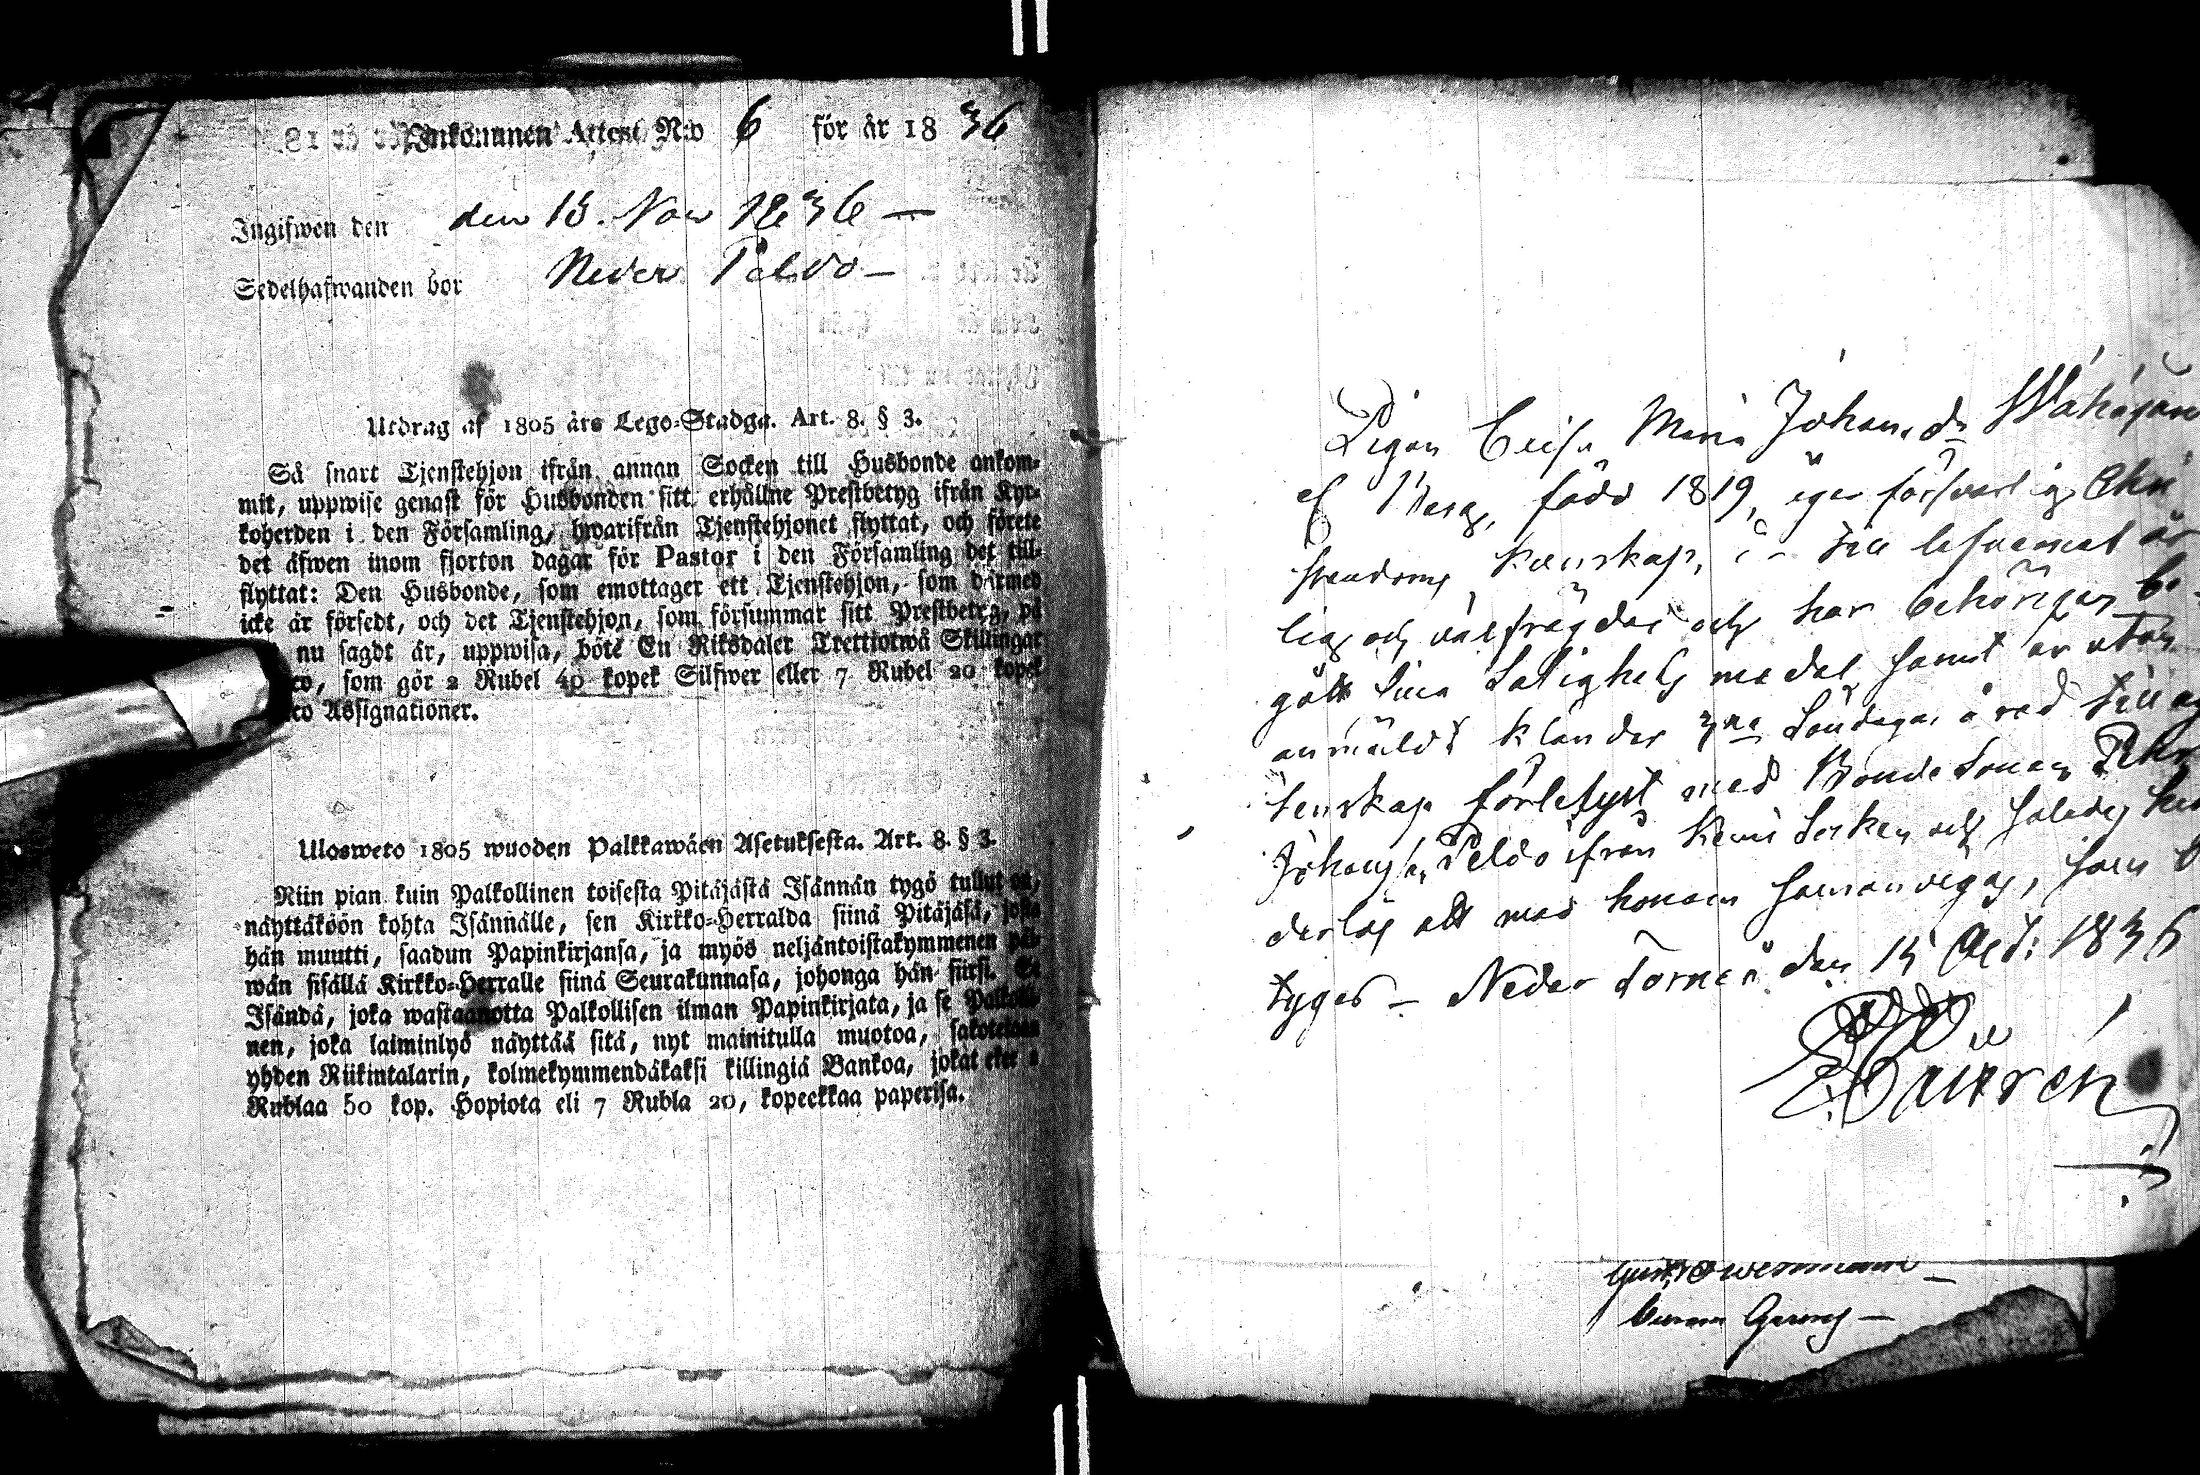 Ankommen Attest N:o 6 för år 1836
Ingifwen den den 15. Nov 1836 —
Sedelhafwanden bor Neder Peldo —
Utdrag af 1805 års Lego-Stadga. Art. 8. § 3.
Så snart Tjenstehjon ifrån annan Socken till Husbonde ankom-
mit, uppwise genast för Husbonden sitt erhållne Prestbetyg ifrån Kyr-
koherden i den Församling, hwarifrån Tjenstehjonet flyttat, och förete
det äfwen inom fjorton dagar för Pastor i den Församling det till-
flyttat: Den Husbonde, som emottager ett Tjenstehjon, som därmed
icke är försedt, och det Tjenstehjon, som försummar sitt Prestbetyg, på
nu sagdt är, uppwisa, böte En Riksdaler Trettiotwå Skillingar
som gör 2 Rubel 40 kopek Silfwer eller 7 Rubel 20 kopek
Assignationer.
Ulosweto 1805 wuoden Palkkawäen Asetuksesta. Art. 8. § 3.
Niin pian kuin Palkollinen toisesta Pitäjästä Isännän tygö tullut on,
näyttäköön kohta Isännälle, sen Kirkko-Herralda siinä Pitäjäsä, josta
hän muutti, saadun Papinkirjansa, ja myös neljäntoistakymmenen päi-
wän sisällä Kirkko-Herralle siinä Seurakunnasa, johonga hän siirsi. Se
Isändä, joka wastaanotta Palkollisen ilman Papinkirjata, ja se Palkolli-
nen, joka laiminlyö näyttää sitä, nyt mainitulla muotoa, sakotetaan
yhden Riikintalarin, kolmekymmendäkaksi killingiä Bankoa, jokat eket 2
Rublaa 50 kop. Hopiota eli 7 Rubla 20, kopeekkaa paperisa.
Pigan Maria Johans dr
född 1819, äger försvarlig Chri
stendoms kunskap, till lefvernet är
lig och välfrägdad och har behörigen be-
gått sina Salighets medel, samt är utan
anmäldt klander 3ne Söndagar å rad till äg
tenskap förlyst med Bonde Sonen Pehr
Johansson Peldo ifrån Kemi Socken och
att med honom sammanvigas, som b
tygas — Neder Torneå den 15 Oct: 1836